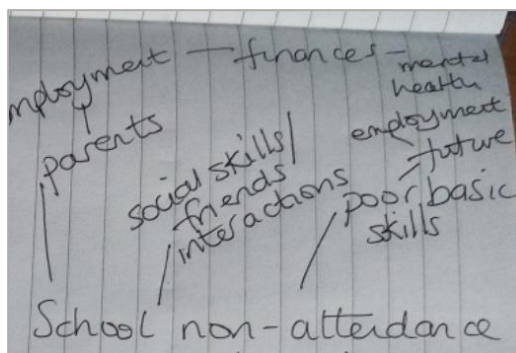 mployment – finances – mental
health
parents
social skills/
friends
interactions
employment
future
poor basic
skills
School non-attendance